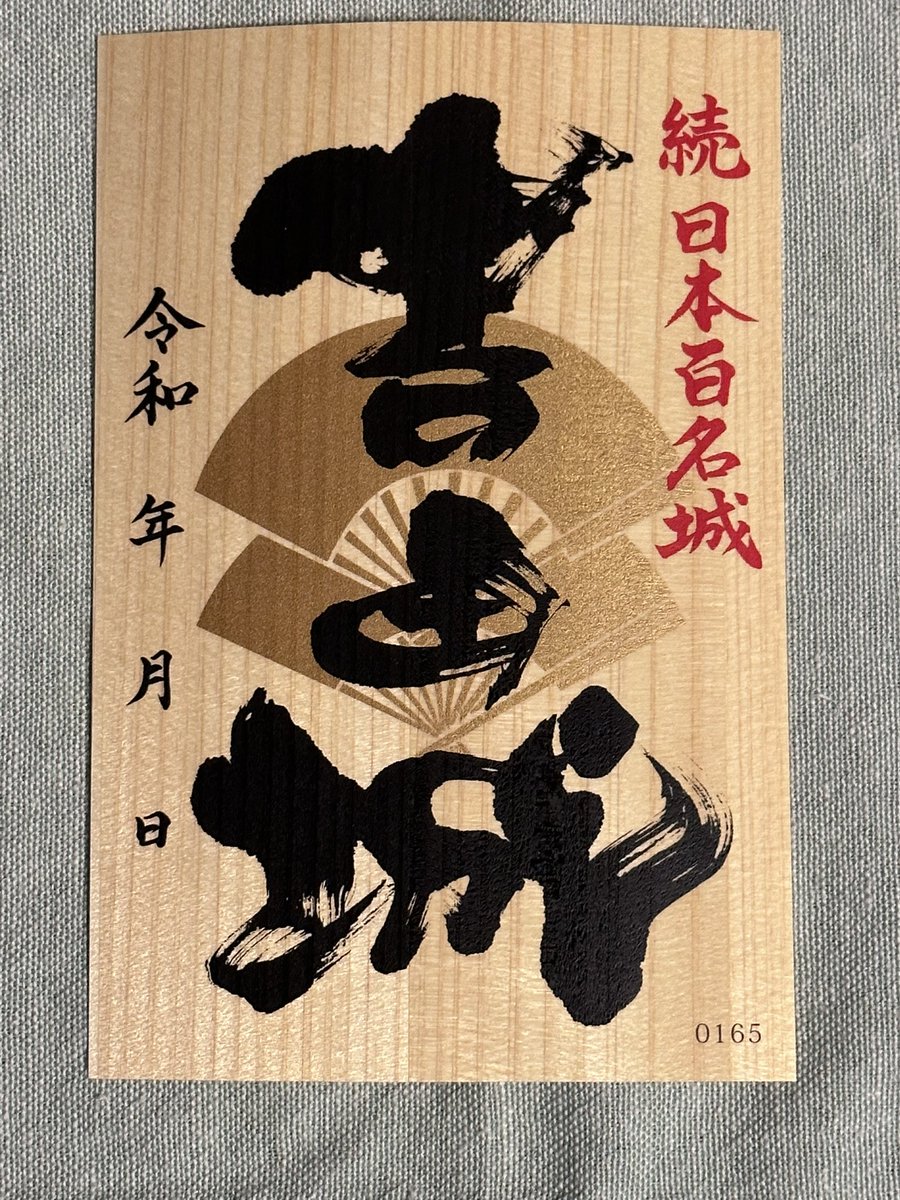 続日本百名城
吉田城
令和 年 月 日
0165